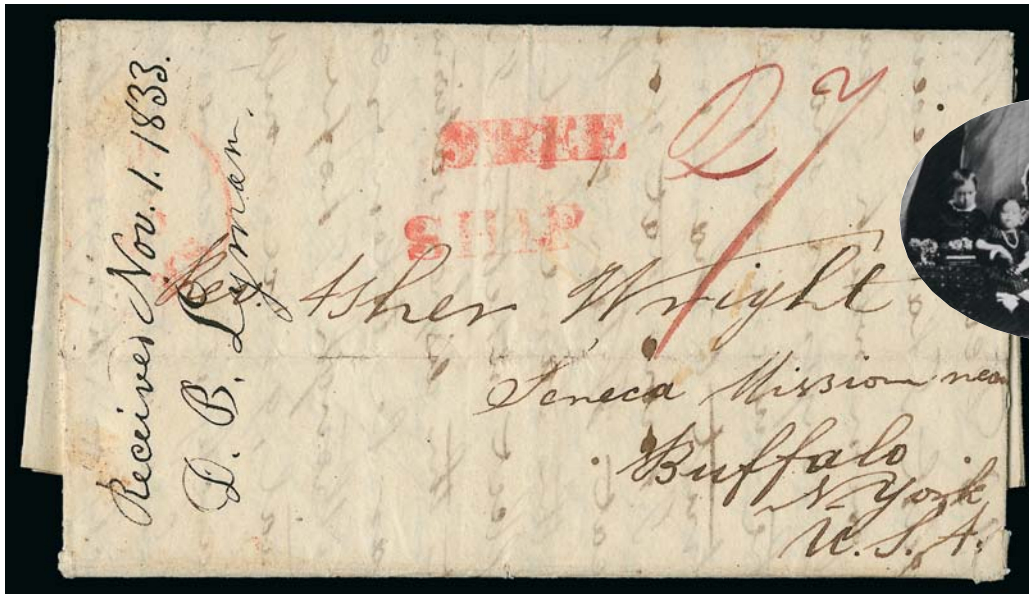 Received Nov. 1. 1833.
D. B. Lyman.
FREE
SHIP
27
Rev Asher Wright
Seneca Mission near
Buffalo
N-York
U.S.A.